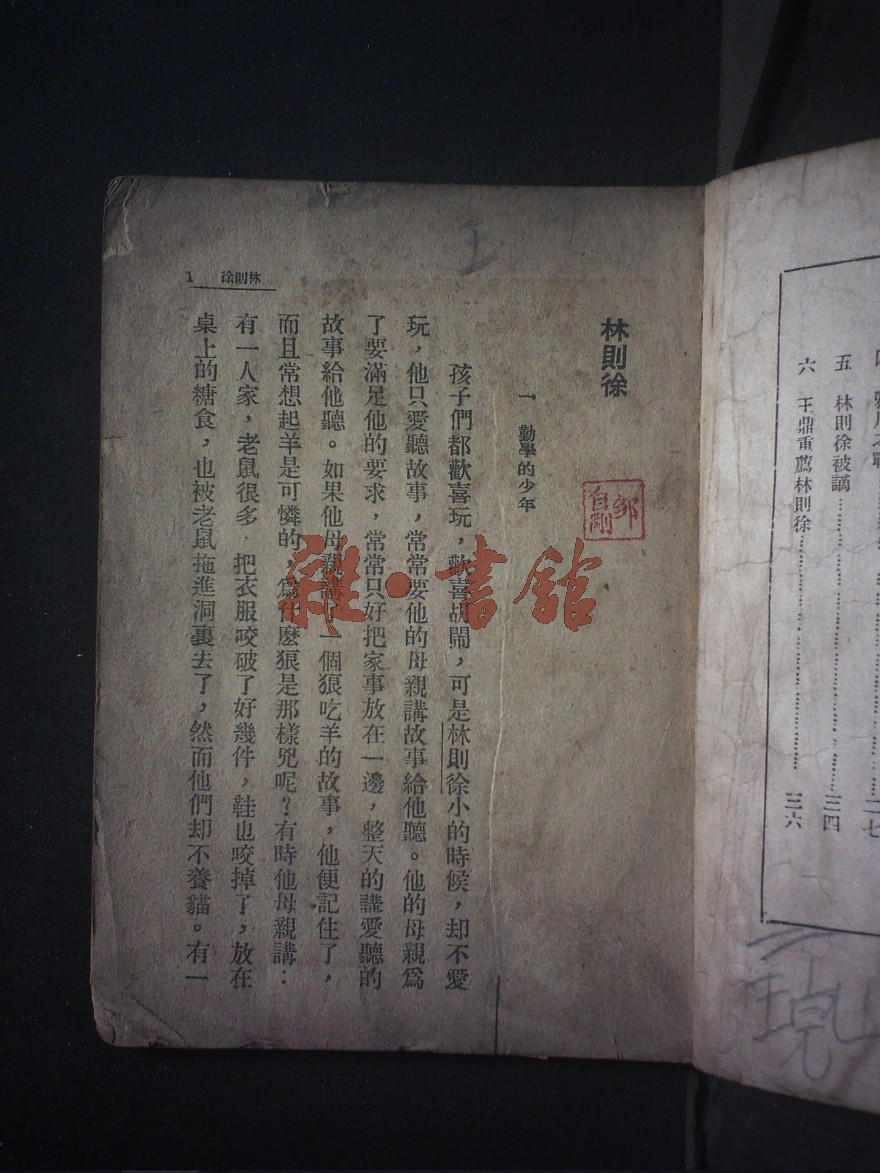 林則徐
一 勤學的少年
孩子們都歡喜玩，歡喜胡鬧，可是林則徐小的時候，却不愛
玩，他只愛聽故事，常常要他的母親講故事給他聽。他的母親爲
了要滿足他的要求，常常只好把家事放在一邊，整天的講愛聽的
故事給他聽。如果他母親講了一個狼吃羊的故事，他便記住了，
而且常想起羊是可憐的，爲什麽狠是那樣兇呢？有時他母親講：
有一人家，老鼠很多，把衣服咬破了好幾件，鞋也咬掉了，放在
桌上的糖食，也被老鼠拖進洞裏去了，然而他們却不養貓。有一
林則徐 1
鄒自剛
雜·書館
五 林則徐被謫 三四
六 王鼎重薦林則徐 三六
二七